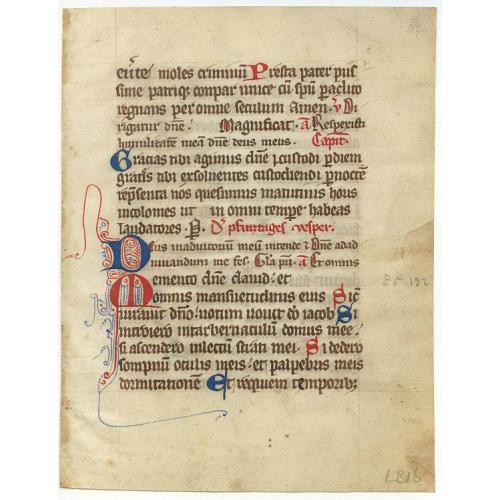 moles criminū Presta pater piis
sime patriq; conpar unice cū spū paclito
regnans per omne seculum amen. V Di
rigatur dn̄e. Magnificat. a Respexisti
humilitatē meā dn̄e deus meus. Capit̄
Gracias tibi agimus dn̄e custodi p diem
gratēs tibi exsoluentes custodiendi p nocte
rep̄senta nos quesumus matutinis horis
incolomes ut in omni tempe habeas
laudatores. vesper.
Deus in adiutoriū meū intende Dn̄e ad ad
iuuandum me fes. Gła p̄ri a Et omnis
Memento dn̄e dauid: et
omnis mansuetudinis eius Sic̄
iurauit dn̄o: uotum uouit dō iacob Si
introiero in tabernaculū domus mee:
si ascendero in lectum strati mei. Si dedero
sompnū oculis meis: et palpebris meis
dormitationē Et requiem temporib;
Ps. 132
LB16